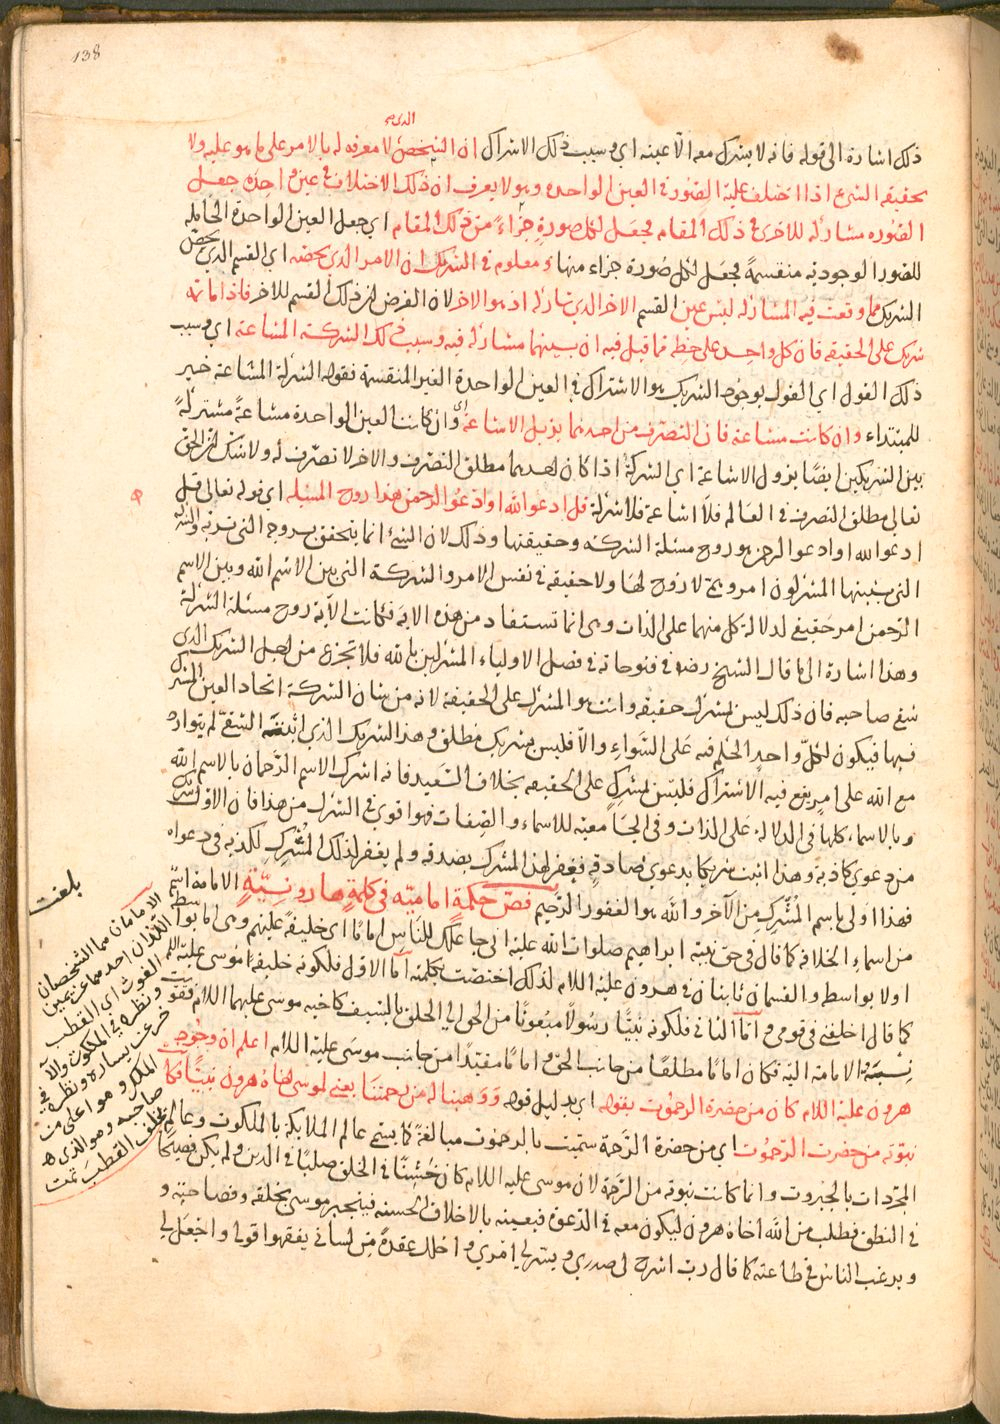 138
الذي
ذلك اشارة الى قوله فانه لا يشرك معه الا عينه اي وسبب ذلك الاشراك ان الشخص لا معرفه له بالامر على ما هو عليه ولا
بحقيقه الشيء اذا اختلف عليه الصور في العين الواحدة وهو لا يعرف ان ذلك الاختلاف في عين واحدة جعل
الصوره مشاركه للاخرى في ذلك المقام فجعل لكل صورة جزاء من ذلك المقام اي جعل العين الواحدة الحامله
للصور الوجوديه منقسمة فجعل لكل صورة جزاء منها ومعلوم في الشريك ان الامر الذي يخصه اي القسم الذي يخص
الشريك مما وقعت فيه المشاركه ليس عين القسم الاخر الذي شاركه اذ هو الاخر لان الفرض ان ذلك القسم للاخر فاذا ما ثمه
شريك على الحقيقه فان كل واحد على حظه مما قيل فيه ان بينهما مشاركه فيه وسبب ذلك الشركة المشاعة اي وسبب
ذلك القول اي القول بوجود الشريك هو الاشتراك في العين الواحدة الغير المنقسمة فقوله الشركة المشاعة خبر
للمبتداء وان كانت مشاعة فان التصرف من احدهما يزيل الاشاعة اي وان كانت العين الواحدة مشاعة مشتركة
بين الشريكين ايضا يزول الاشاعة اي الشركة اذا كان احدهما مطلق التصرف والاخر لا تصرف له ولا شك ان الحق
تعالى مطلق التصرف في العالم فلا اشاعة فلا شركة قل ادعوا الله او ادعوا الرحمن هذا روح المسئله اي قوله تعالى قل
ادعوا الله او ادعوا الرحمن هو روح مسئلة الشركة وحقيقتها وذلك لان الشيء انما يتحقق بروحه التي تربه والشركة
التي يثبتها المشركون امر وهمي لا روح لها ولا حقيقه في نفس الامر والشركة التي بين الاسم الله وبين الاسم
الرحمن امر حقيقي لدلالة كل منهما على الذات وهي انما تستفاد من هذه الاية فكانت الاية روح مسئلة الشركة
وهذا اشارة الى ما قال الشيخ رضه في فتوحاته في فصل الاولياء المشركين بالله فلا تجزع من اجل الشريك الذي
شقي صاحبه فان ذلك ليس بمشرك حقيقه وانت هو المشرك على الحقيقة لانه من شان الشركة اتحاد العين المشترك
فيها فيكون لكل واحد الحكم فيه على السواء والا فليس بشريك مطلق وهذا الشريك الذي اثبته الشقي لم يتوارد
مع الله على امر يقع فيه الاشتراك فليس بمشرك على الحقيقه بخلاف السعيد فانه اشرك الاسم الرحمان بالاسم الله
وبالاسماء كلها في الدلالة على الذات وفي الجامعية للاسماء والصفات فهو اقوى في الشرك من هذا فان الاول شريك
من دعوى كاذبه وهذا اثبت شريكا بدعوى صادق فغفر لهذا المشرك بصدقه ولم يغفر لذلك المشرك لكذبه في دعواه
فهذا اولى باسم المشرك من الآخر والله هو الغفور الرحيم فص حكمة امامية في كلمة هارونية الامامة اسم
من اسماء الخلافة كما قال في حق نبيه ابراهيم صلوات الله عليه اني جاعلك للناس اماما اي خليفة عليهم وهي اما بواسطة
اولا بواسطه والقسمان ثابتان في هرون عليه السلام لذلك اختصت بكلمته اما الاول فلكونه خليفة لموسى عليه السلم
كما قال اخلفني في قومي واما الثاني فلكونه نبيا رسولا مبعوثا من الحق الى الخلق بالسيف كاخيه موسى عليهما السلام فقويت
نسبة الامامة اليه فكان اماما مطلقا من جانب الحق واماما مقيدا من جانب موسى عليه السلام اعلم ان وجود
هرون عليه السلام كان من حضرة الرحموت بقوله اي بدليل قوله ووهبنا له من رحمتنا يعني لموسى اخاه هرون نبيا فكانت
نبوته من حضرت الرحموت اي من حضرة الرحمة سميت بالرحموت مبالغة كما يسمى عالم الملايكة بالملكوت وعالم
المجردات بالجبروت وانما كانت نبوته من الرحمة لان موسى عليه السلام كان خشنا في الخلق صلبا في الدين ولم يكن فصيحا
في النطق فطلب من الله اخاه هرون ليكون معه في الدعوة فيعينه بالاخلاق الحسنه فينجبر موسى بخلقه وفصاحته و
ويرغب الناس في طاعته كما قال رب اشرح لي صدري ويسر لي امري واحلل عقدة من لساني يفقهوا قولي واجعل لي
بلغت
الامامان هما الشخصان
اللذان احدهما عن يمين
الغوث اي القطب
ونظره في الملكوت والآ
خر عن يساره ونظره في
الملك وهو اعلى من
صاحبه وهو الذي
يخلف القطب تمت